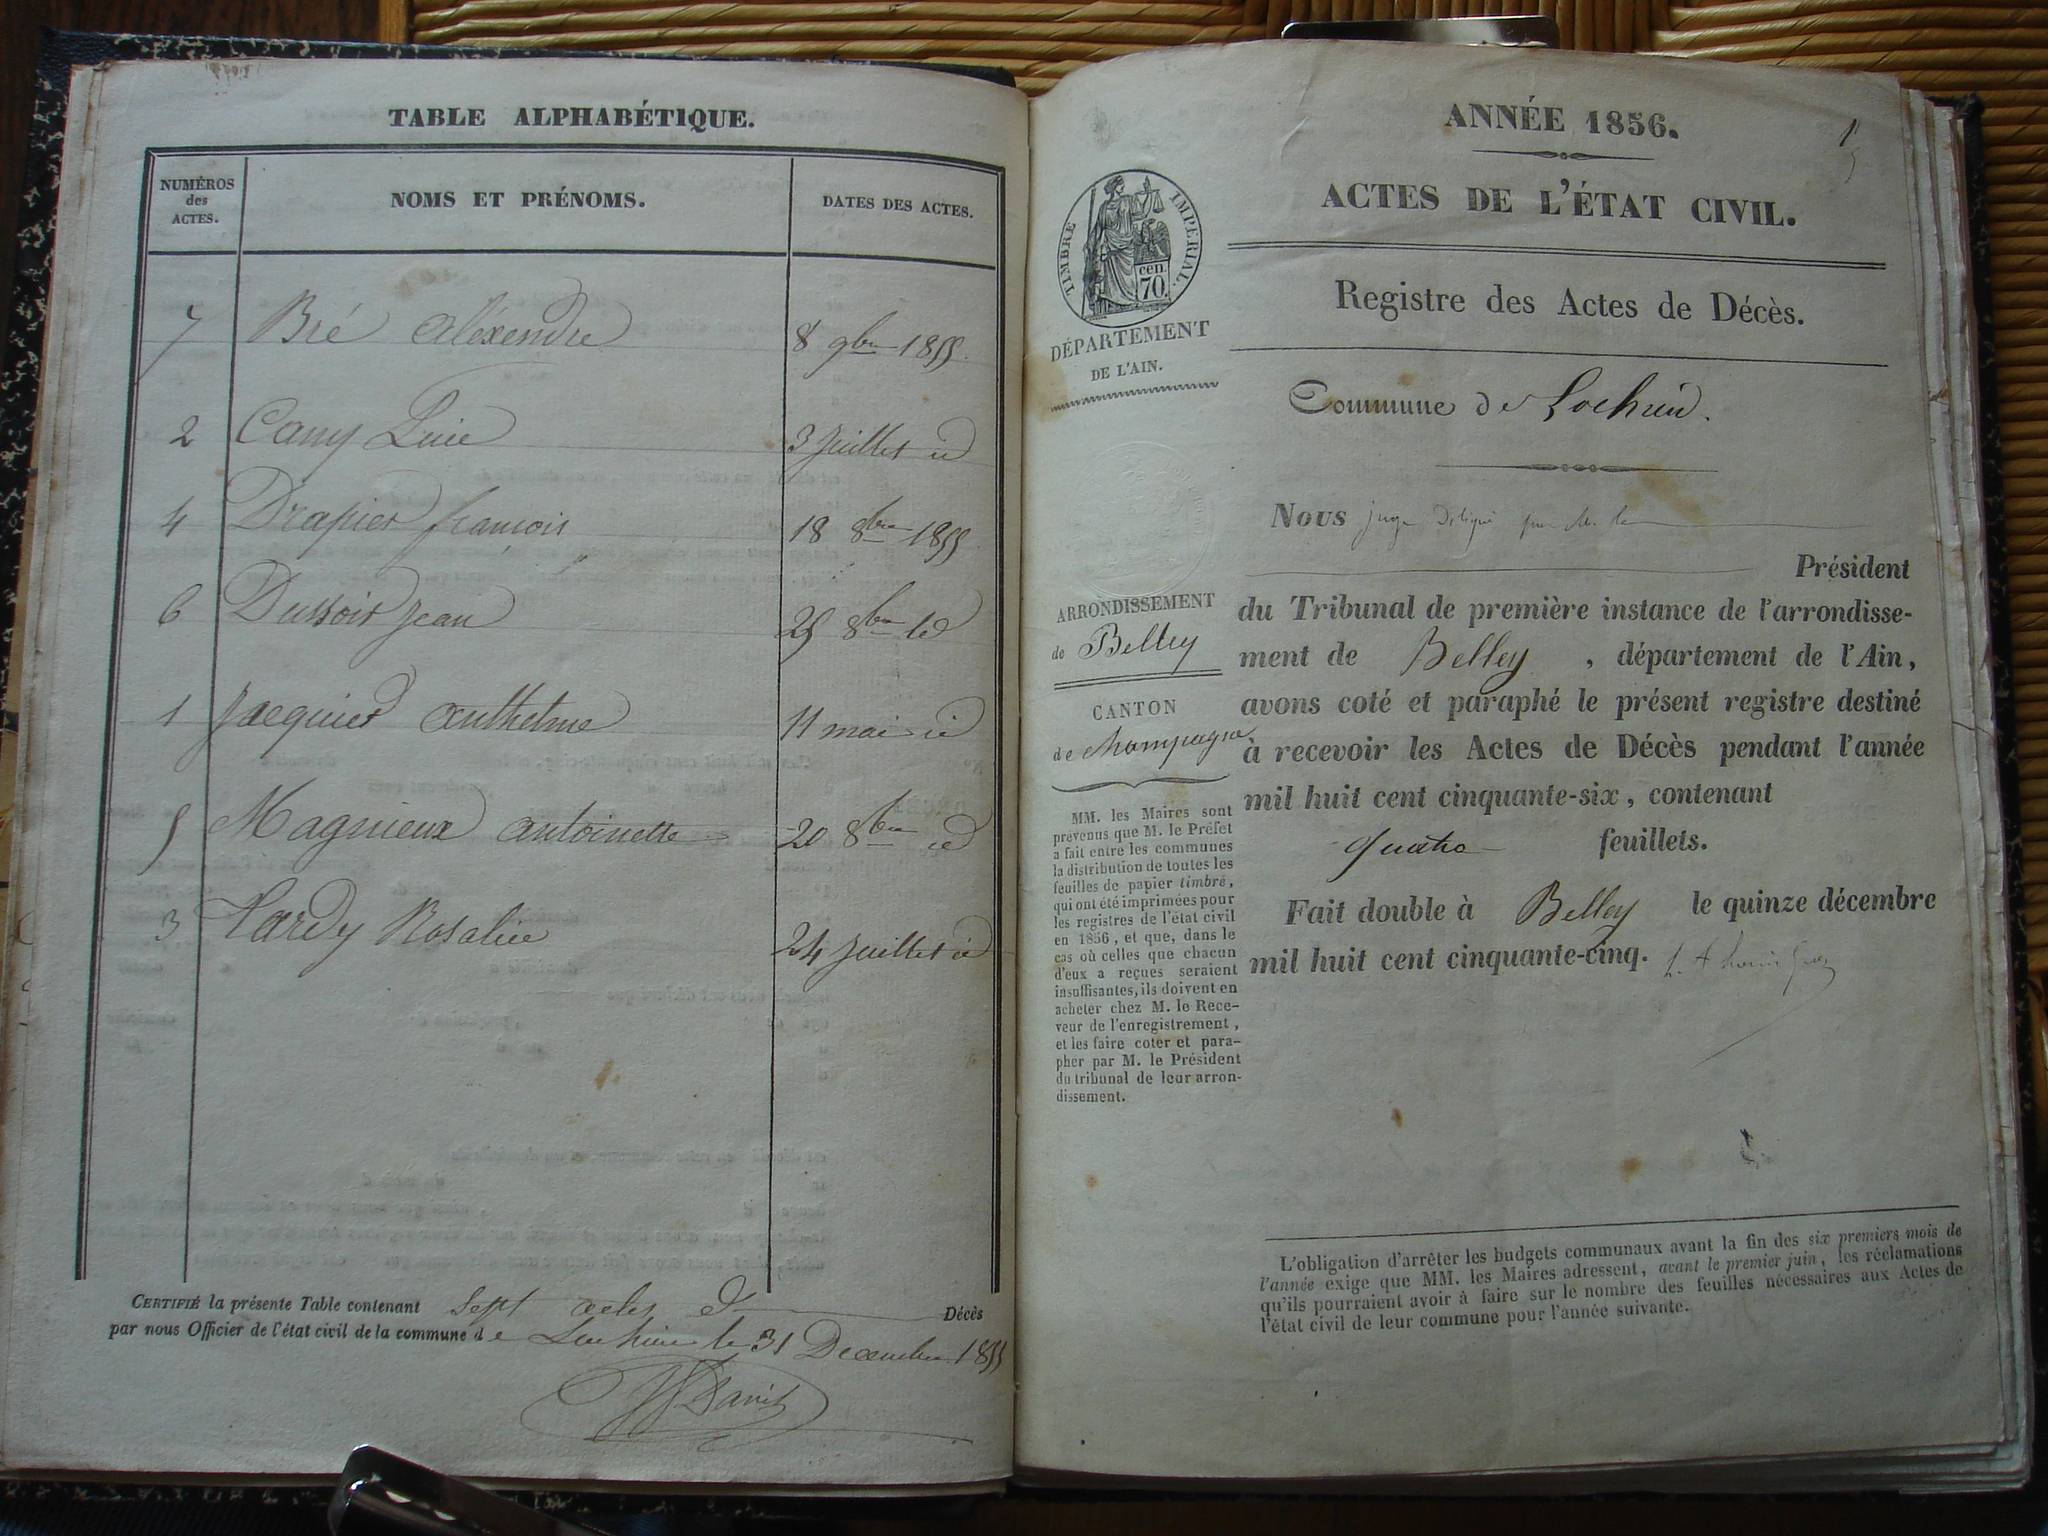 TABLE ALPHABÉTIQUE.
NUMÉROS
des
ACTES.
NOMS ET PRÉNOMS.
DATES DES ACTES.
7 Bré Aléxendre 8 9bre 1855
2 Cany 3 Juillet id
4 Drapier françois 18 8bre 1855
6 Dussoit Jean 25 8bre id
1 Jacquier Anthelme 11 mai id
5 Magnieux Antoinette 20 8bre id
3 Tardy Rosalie 24 Juillet id
CERTIFIÉ la présente Table contenant Sept actes de Décès
par nous Officier de l'état civil de la commune de Lochieu le 31 Decembre 1855
ANNÉE 1856.
ACTES DE L'ÉTAT CIVIL.
Registre des Actes de Décès.
TIMBRE IMPERIAL.
cen.
70.
DÉPARTEMENT
DE L'AIN.
Commune de Lochieu.
Nous juge délégué par M. le
Président
du Tribunal de première instance de l'arrondisse-
ment de Belley, département de l'Ain,
avons coté et paraphé le présent registre destiné
à recevoir les Actes de Décès pendant l'année
mil huit cent cinquante-six, contenant
quatre feuillets.
Fait double à Belley le quinze décembre
mil huit cent cinquante-cinq.
ARRONDISSEMENT
de Belley
CANTON
de champagne
MM. les Maires sont
prévenus que M. le Préfet
a fait entre les communes
la distribution de toutes les
feuilles de papier timbré,
qui ont été imprimées pour
les registres de l'état civil
en 1856, et que, dans le
cas où celles que chacun
d'eux a reçues seraient
insuffisantes, ils doivent en
acheter chez M. le Rece-
veur de l'enregistrement,
et les faire coter et para-
pher par M. le Président
du tribunal de leur arron-
dissement.
L'obligation d'arrêter les budgets communaux avant la fin des six premiers mois de
l'année exige que MM. les Maires adressent, avant le premier juin, les réclamations
qu'ils pourraient avoir à faire sur le nombre des feuilles nécessaires aux Actes de
l'état civil de leur commune pour l'année suivante.